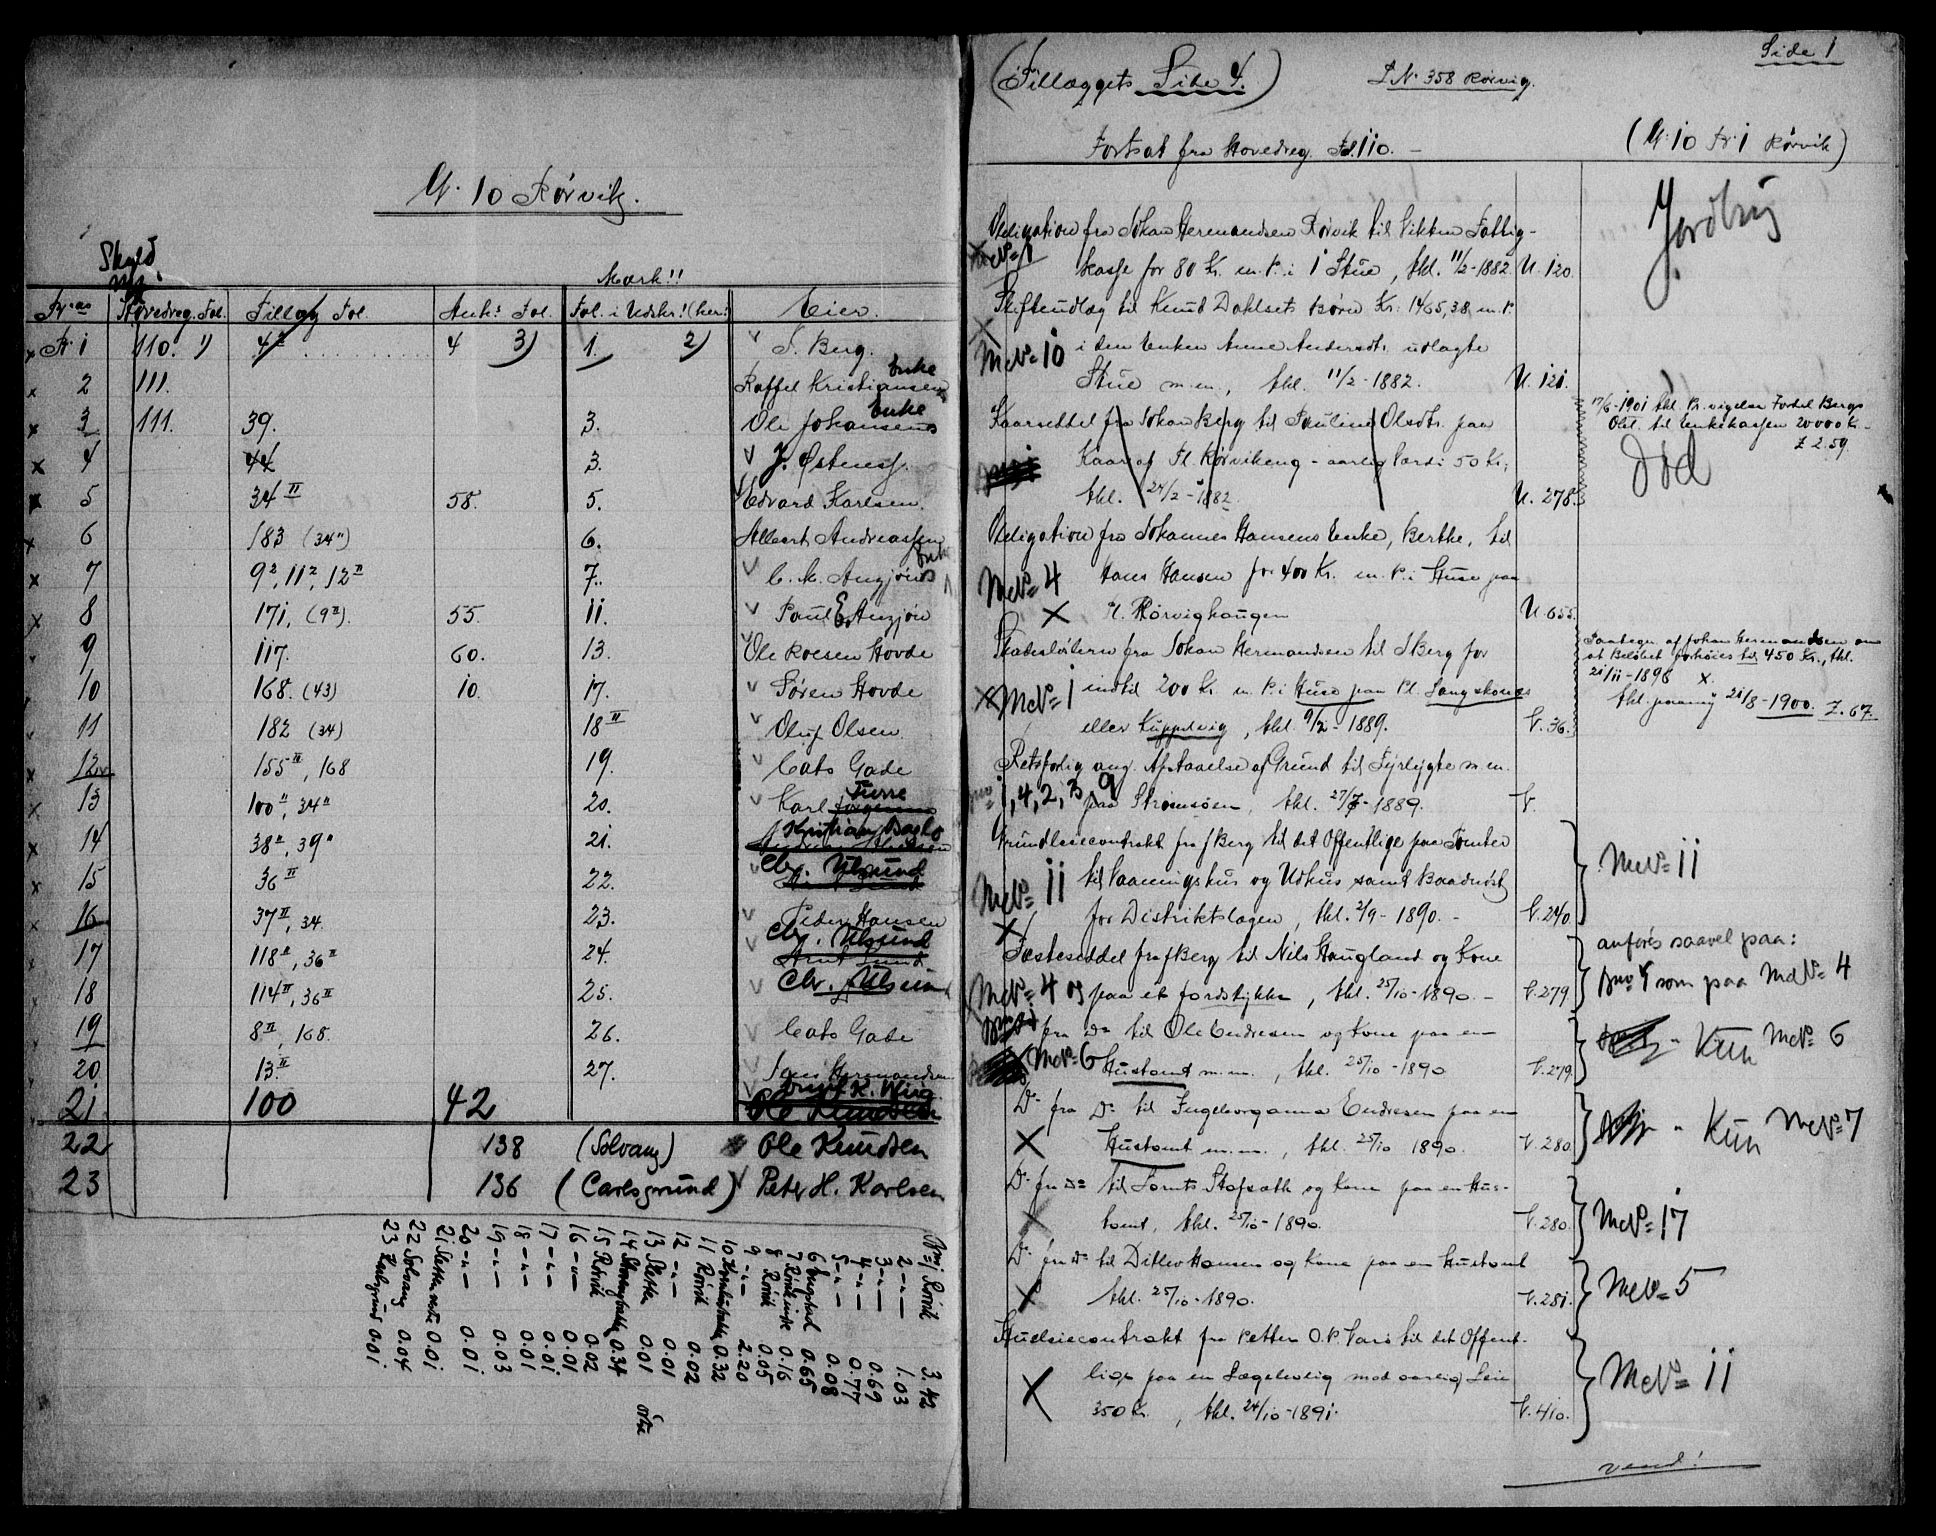 G. 10 Rørvik.
Skyld
Mærk!!
Br. no Hovedreg. Fol. Tillæg Fol. Ank. Fol. Fol. i Udskr.! (her: Eier.
Br. 1 110. 1) 4 3) 1. 2) J. Berg.
2 111. Roffel Kristiansens Enke
3 111. 39. 3. Ole Johansens Enke
4 44 3. J. Østensf.
5 34 II 58. 5. Edvard Karlsen.
6 183 (34") 6. Albert Andreassen
7 9², 11², 12 II 7. C. M. Angjøns Enke
8 171, (9 II). 55. 11. Paul E. Angjøn
9 117. 60. 13. Ole Roesen Hovde
10 168. (43) 10. 17. Søren Hovde
11 182 (34) 18 II Oluf Olsen.
12 155 II, 168 19. Cato Gade
13 100", 34" 20. Karl Furre
14 38", 39" 21. Kristian Dagslo
15 36 II 22. Chr. Ulsund
16 37 II, 34. 23. Peder Hansen
17 118 II, 36 II 24. Chr. Ulsund Arnt Lund
18 114 II, 36 II 25. Chr. Ulsund
19 8 II, 168. 26. Cato Gade
20 13 II 27. Jans Hermandsen
21 100 42 K. Wiig Ole Knudsen
22 138 (Solvang) Ole Knudsen
23 136 (Carlsgrund) Peter H. Karlsen
Bno 1 Rørvik 3.42
2 -"- 1.03
3 -"- 0.69
4 -"- 0.77
5 -"- 0.08
6 Engstad 0.65
7 Rørvik indre 0.16
8 Rørvik 0.05
9 -"- 2.20
10 0.32
11 Rørvik 0.02
12 -"- 0.01
13 Sletten 0.01 øvre
14 0.34
15 Rørvik 0.02
16 -"- 0.01
17 -"- 0.01
18 -"- 0.01
19 -"- 0.03
20 -"- 0.01
21 Sletten nedre 0.01
22 Solvang 0.04
23 Karlsgrund 0.01
Side 1
(Tillæggets Side 4.) L.No 358 Rørvig.
Fortsat fra Hovedreg. Fol. 110. – (G. 10 Br. 1 Rørvik)
Jordbrug
Obligation fra Johan Hermandsen Rørvik til Vikten Fattig-
kasse for 80 Kr. m. P. i 1 Stue, thl. 11/2-1882. U. 120.
Skifteudlæg til Knud Dahlsets Børn Kr. 1465,38 m. P.
McNo 10 i den Enken Anne Andersdtr. udlagte
Stue m.m., thl. 11/2-1882. U. 121.
Kaarseddel fra Johan Berg til Pauline Olsdtr. paa
Kaar af Pl. Rørvikeng - aarlig Værdi 50 Kr.,
thl. 24/2-1882. U. 278.
17/6-1901 thl. Pr. vigelse for J. Bergs
Obl. til Enkekassen 20000 Kr.
Z 2.59.
død
Obligation fra Johannes Hansens Enke, Berthe, til
McNo 4 Hans Hansen for 400 Kr. m. P. i Huse paa
Pl. Rørvighaugen U. 655.
Skadesløsbrev fra Johan Hermandsen til J Berg for
McNo 1 indtil 200 Kr. m. P. i Huse paa Pl. Langskones
eller Kuppelvig, thl. 9/2-1889. V. 36.
Paategn. af Johan Hermandsen om
at Beløbet forhøies til 450 Kr., thl.
21/11-1898 X.
thl. paany 21/8-1900. Z. 67.
Retsforlig ang. Afstaaelse af Grund til Fyrlygte m.m.
Bno 1, 4, 2, 3, 9 paa Strømsøen, thl. 27/7-1889. V.
Grundleiecontrakt fra J Berg til det Offentlige paa Tomter
McNo 11 til Vaaningshus og Udhus samt Baadnøst
for Distriktslægen, thl. 2/9-1890. - V. 240.
McNo 11
Fæsteseddel fra J Berg til Nils Haugland og Kone
McNo 4 og paa et Jordstykke, thl. 25/10-1890. - V. 279.
anføres saavel paa:
Bno 4 som paa McNo 4
fra Do til Ole Endresen og Kone paa en
McNo 6 Hustomt m.m., thl. 25/10-1890 V. 279.
- Kun McNo 6
Do fra Do til Ingeborganna Endresen paa en
Hustomt m.m., thl. 25/10 1890. V. 280.
- Kun McNo 7
Do fra Do til Tomts Stofsæth og Kone paa en Hus-
tomt, thl. 25/10-1890. V. 280.
McNo 17
Do fra Do til Ditlev Hansen og Kone paa en Hustomt
thl. 25/10-1890. V. 281.
McNo 5
Husleiecontrakt fra Petter O. P. Varø til det Offent-
lige paa en Lægebolig mod aarlig Leie
350 Kr., thl. 24/10-1891. V. 410.
McNo 11
vend!